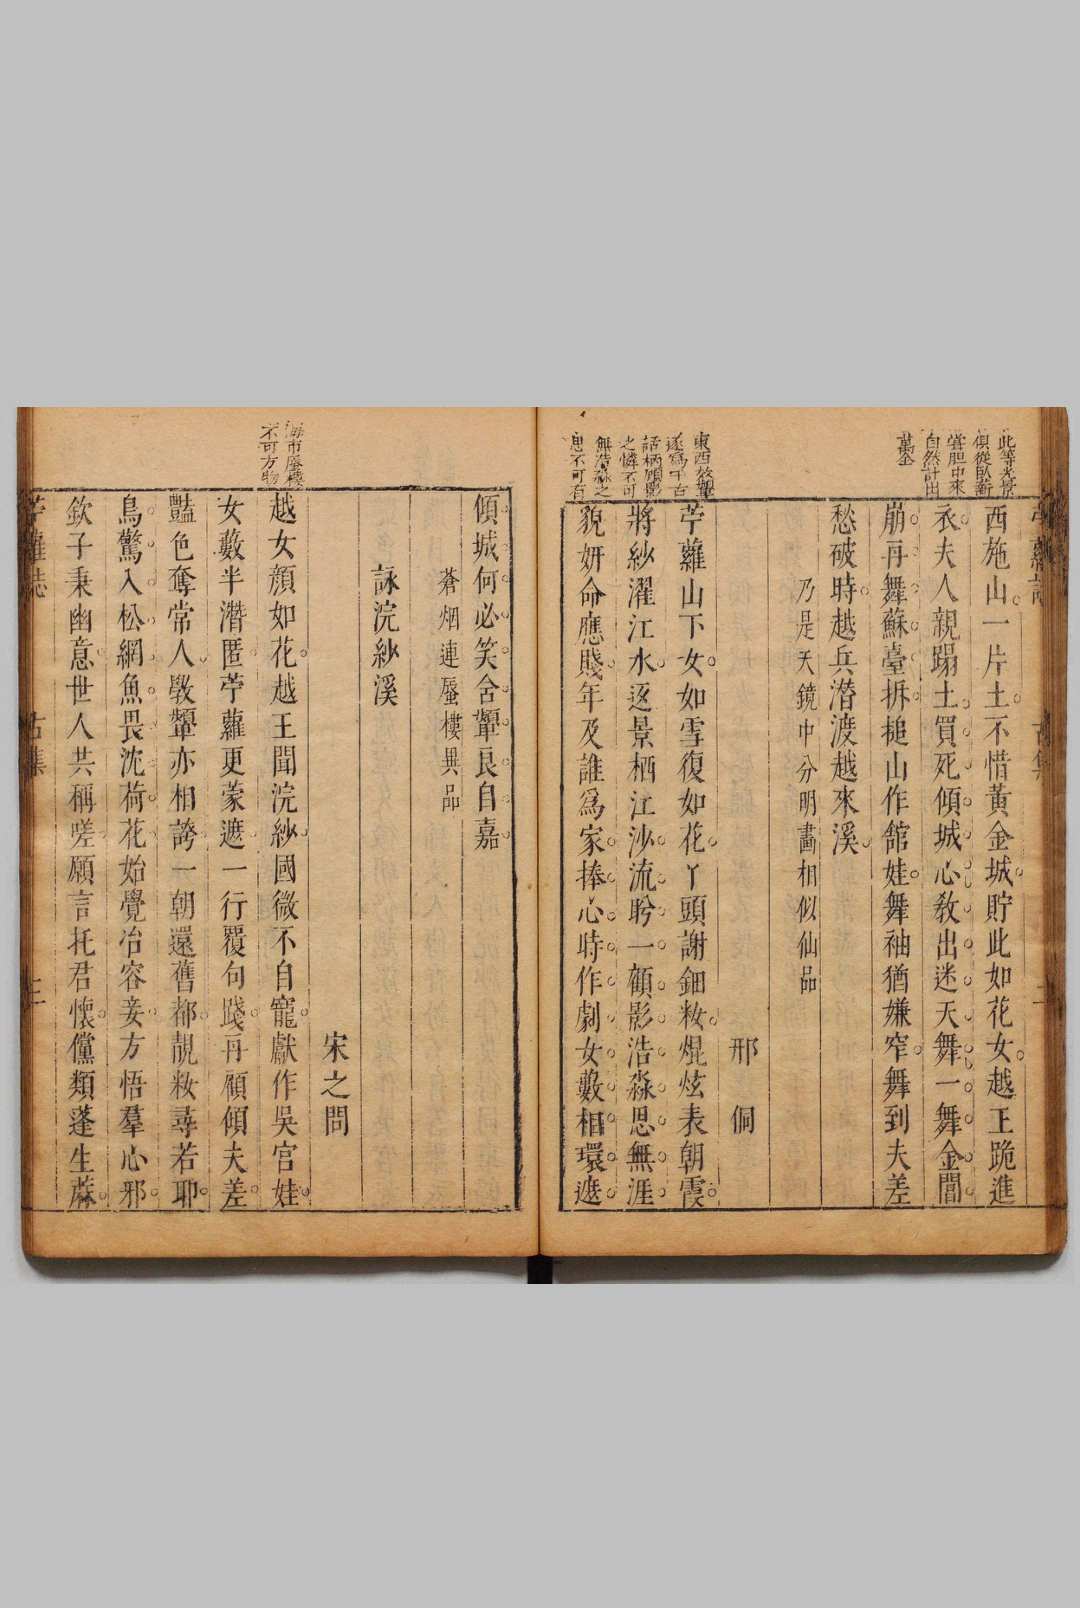 此等光景
俱從臥薪
嘗胆中來
自然計出
萬全
東西效顰
遂為千古
話柄顧影
之憐不可
無浩淼之
思不可有
苧蘿誌
古集
二
西施山一片土不惜黃金城貯此如花女越王跪進
衣夫人親蹋土買死傾城心敎出迷天舞一舞金閶
崩再舞蘇臺拆搥山作館娃舞袖猶嫌窄舞到夫差
愁破時越兵潛渡越來溪
乃是天鏡中分明畫相似仙品
邢侗
苧蘿山下女如雪復如花丫頭謝鈿籹焜炫表朝霞
將紗濯江水逐景栖江沙流盻一顧影浩淼思無涯
貌妍命應賤年及誰爲家捧心時作劇女藪相環遮
海市蜃樓
不可方物
傾城何必笑舍顰良自嘉
蒼烟連蜃樓異品
詠浣紗溪
宋之問
越女顏如花越王聞浣紗國微不自寵獻作吳宮娃
女藪半潛匿苧蘿更蒙遮一行覆句踐再顧傾夫差
豔色奪常人斆顰亦相誇一朝還舊都靚籹尋若耶
鳥驚入松網魚畏沈荷花始覺冶容妾方悟羣心邪
欽子秉幽意世人共稱嗟願言托君懷儻類蓬生蔴
苧蘿誌
古集
三